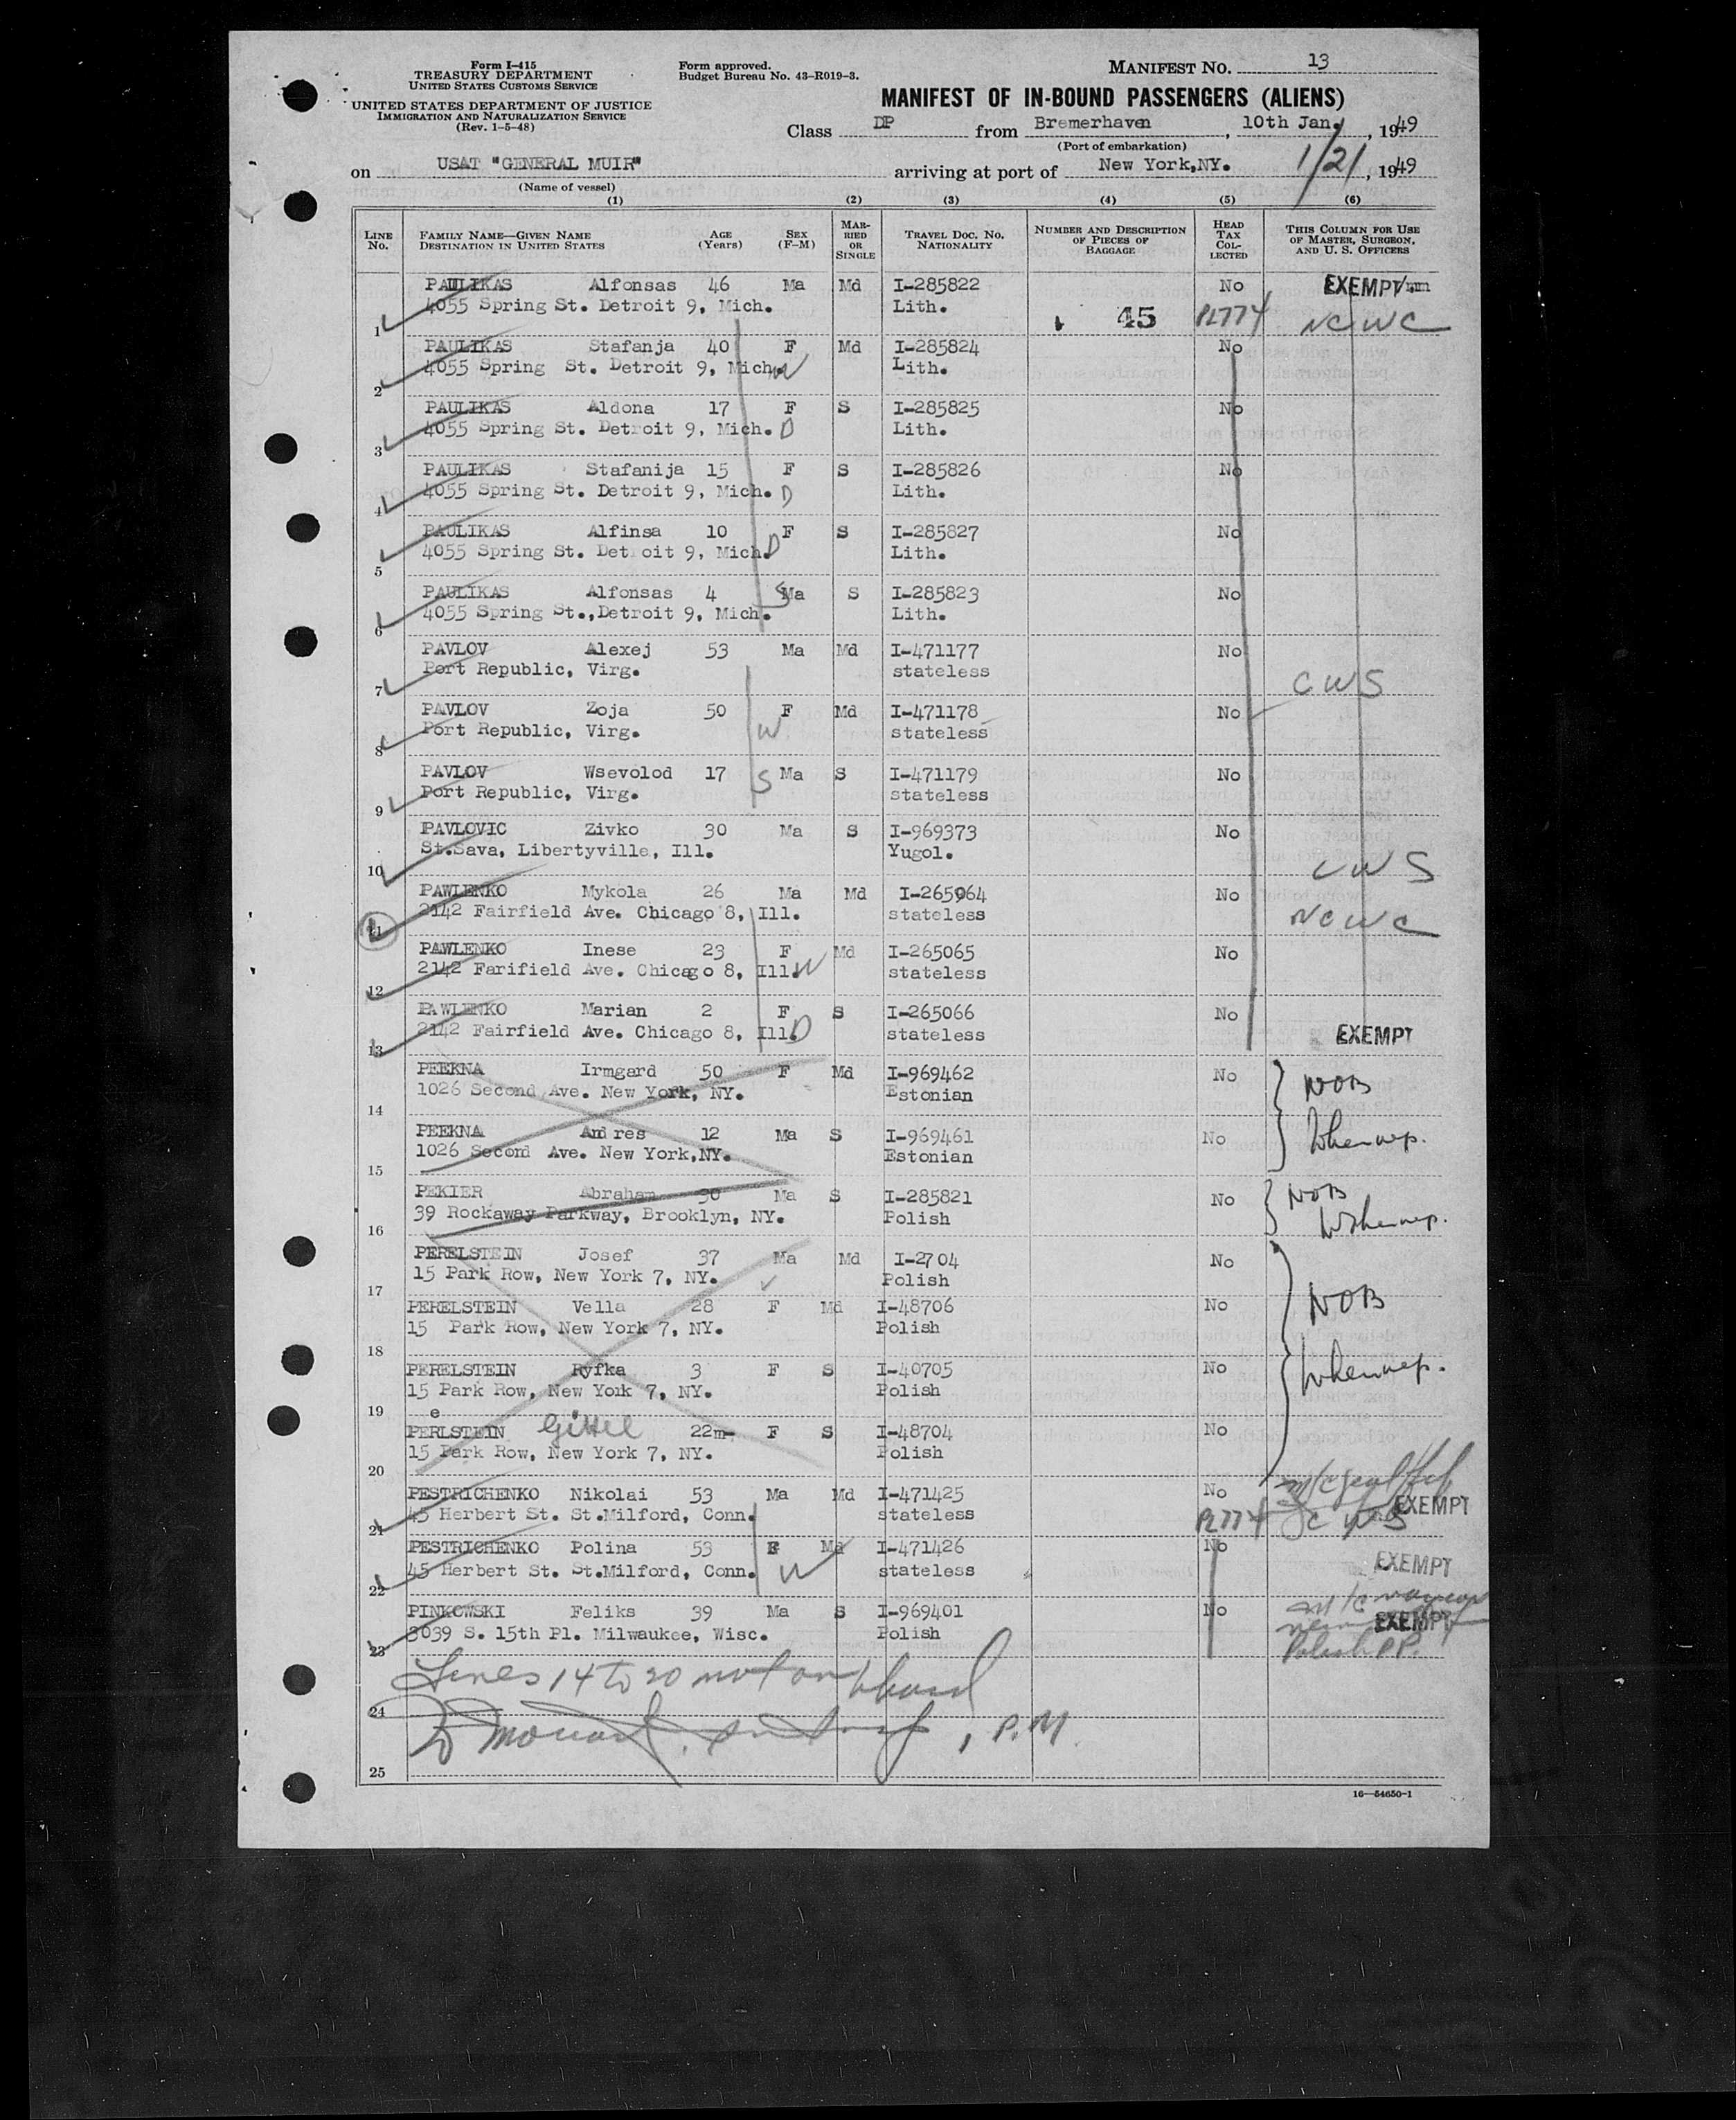 Form I-415
TREASURY DEPARTMENT
UNITED STATES CUSTOMS SERVICE
UNITED STATES DEPARTMENT OF JUSTICE
IMMIGRATION AND NATURALIZATION SERVICE
(Rev. 1-5-48)
Form approved.
Budget Bureau No. 43-R019-3.
MANIFEST NO. 13
MANIFEST OF IN-BOUND PASSENGERS (ALIENS)
Class DP from Bremerhaven, 10th Jan., 1949
(Port of embarkation)
on USAT "GENERAL MUIR" arriving at port of New York,NY. 1/21, 1949
(Name of vessel)
(1) (2) (3) (4) (5) (6)
LINE No. FAMILY NAME—GIVEN NAME DESTINATION IN UNITED STATES AGE (Years) SEX (F-M) MARRIED OR SINGLE TRAVEL DOC. NO. NATIONALITY NUMBER AND DESCRIPTION OF PIECES OF BAGGAGE HEAD TAX COLLECTED THIS COLUMN FOR USE OF MASTER, SURGEON, AND U. S. OFFICERS
PAULIKAS Alfonsas 46 Ma Md I-285822 No EXEMPT
1 4055 Spring St. Detroit 9, Mich. Lith. 45 PL774 NCWC
PAULIKAS Stafanja 40 F Md I-285824 No
2 4055 Spring St. Detroit 9, Mich. W Lith.
PAULIKAS Aldona 17 F S I-285825 No
3 4055 Spring St. Detroit 9, Mich. D Lith.
PAULIKAS Stafanija 15 F S I-285826 No
4 4055 Spring St. Detroit 9, Mich. D Lith.
PAULIKAS Alfinsa 10 F S I-285827 No
5 4055 Spring St. Detroit 9, Mich. D Lith.
PAULIKAS Alfonsas 4 S Ma S I-285823 No
6 4055 Spring St.,Detroit 9, Mich. Lith.
PAVLOV Alexej 53 Ma Md I-471177 No
7 Port Republic, Virg. stateless CWS
PAVLOV Zoja 50 F Md I-471178 No
8 Port Republic, Virg. W stateless
PAVLOV Wsevolod 17 S Ma S I-471179 No
9 Port Republic, Virg. stateless
PAVLOVIC Zivko 30 Ma S I-969373 No
10 St.Sava, Libertyville, Ill. Yugol. CWS
PAWLENKO Mykola 26 Ma Md I-265064 No
11 2142 Fairfield Ave. Chicago 8, Ill. stateless NCWC
PAWLENKO Inese 23 F Md I-265065 No
12 2142 Farifield Ave. Chicago 8, Ill. W stateless
PAWLENKO Marian 2 F S I-265066 No
13 2142 Fairfield Ave. Chicago 8, Ill. D stateless EXEMPT
PEEKNA Irmgard 50 F Md I-969462 No NOB
14 1026 Second Ave. New York, NY. Estonian
PEEKNA Andres 12 Ma S I-969461 No
15 1026 Second Ave. New York,NY. Estonian
PEKIER Abraham 30 Ma S I-285821 No NOB
16 39 Rockaway Parkway, Brooklyn, NY. Polish
PERELSTEIN Josef 37 Ma Md I-2704 No
17 15 Park Row, New York 7, NY. Polish
PERELSTEIN Vella 28 F Md I-48706 No NOB
18 15 Park Row, New York 7, NY. Polish
PERELSTEIN Ryfka 3 F S I-40705 No
19 15 Park Row, New York 7, NY. Polish
e
PERLSTEIN Gittel 22m- F S I-48704 No
20 15 Park Row, New York 7, NY. Polish
PESTRICHENKO Nikolai 53 Ma Md I-471425 No EXEMPT
21 45 Herbert St. St.Milford, Conn. stateless PL774 CWS
PESTRICHENKO Polina 53 F Md I-471426 No EXEMPT
22 45 Herbert St. St.Milford, Conn. W stateless
PINKOWSKI Feliks 39 Ma S I-969401 No EXEMPT
23 3039 S. 15th Pl. Milwaukee, Wisc. Polish Polish PP.
Lines 14 to 20 not on board
24 P.M.
25
16—54650-1